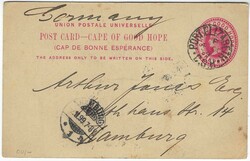 Germany
UNION POSTALE UNIVERSELLE
POST CARD — CAPE OF GOOD HOPE
(CAP DE BONNE ESPÉRANCE)
THE ADDRESS ONLY TO BE WRITTEN ON THIS SIDE.
Arthur Jones Esq
Hamburg